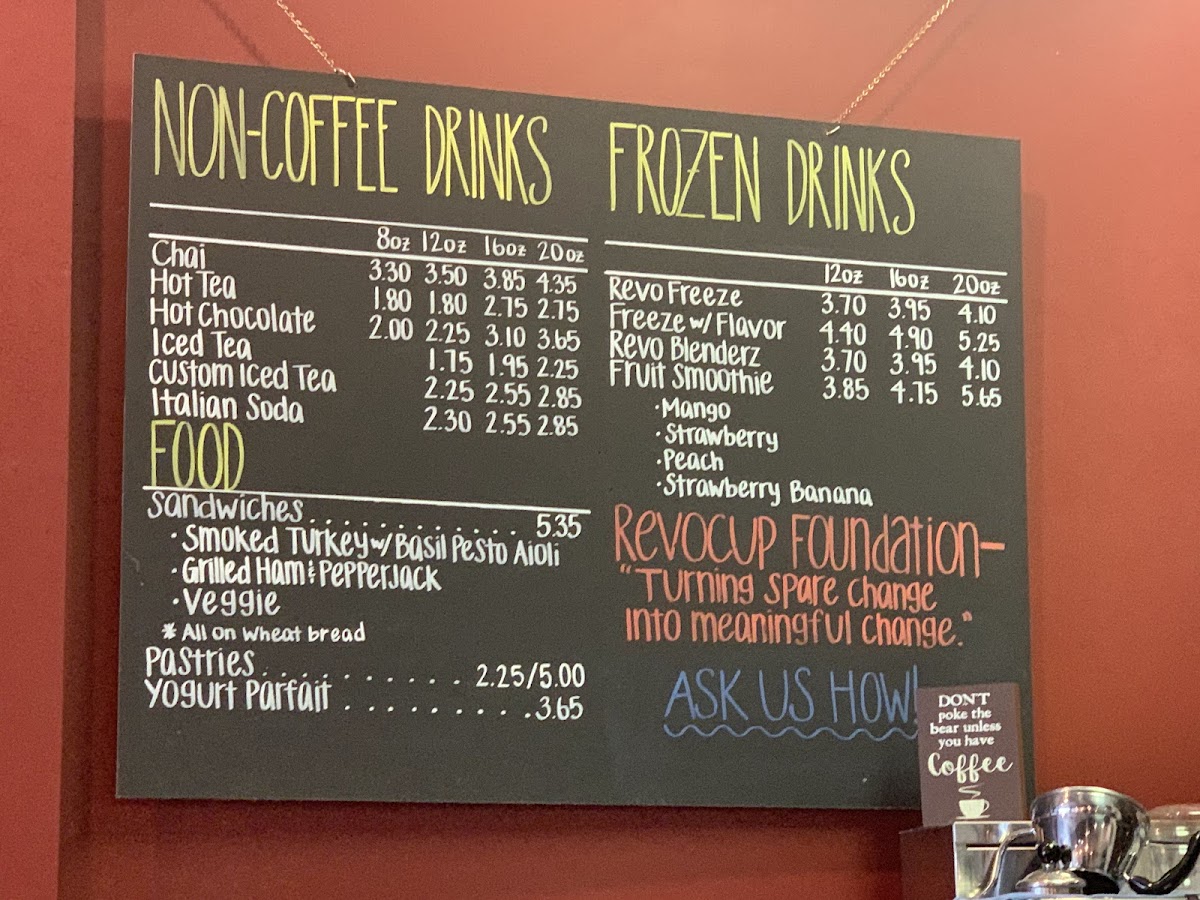 NON-COFFEE DRINKS
8oz 12oz 16oz 20oz
Chai 3.30 3.50 3.85 4.35
Hot Tea 1.80 1.80 2.75 2.75
Hot Chocolate 2.00 2.25 3.10 3.65
Iced Tea 1.75 1.95 2.25
Custom Iced Tea 2.25 2.55 2.85
Italian Soda 2.30 2.55 2.85
FOOD
Sandwiches . . . . . . . . . . . . 5.35
· Smoked Turkey w/ Basil Pesto Aioli
· Grilled Ham & PepperJack
· Veggie
* All on wheat bread
Pastries . . . . . . . . . . 2.25/5.00
Yogurt Parfait . . . . . . . . . 3.65
FROZEN DRINKS
12oz 16oz 20oz
Revo Freeze 3.70 3.95 4.10
Freeze w/ Flavor 4.40 4.90 5.25
Revo Blenderz 3.70 3.95 4.10
Fruit Smoothie 3.85 4.75 5.65
· Mango
· Strawberry
· Peach
· Strawberry Banana
Revocup Foundation-
"Turning spare change
into meaningful change."
ASK US HOW!
DON'T
poke the
bear unless
you have
Coffee